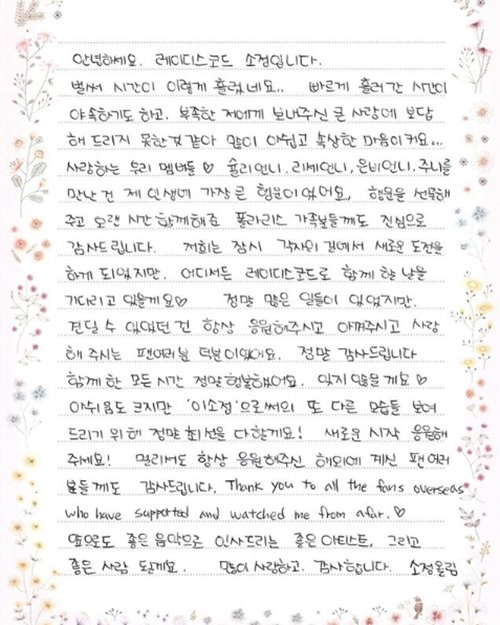 안녕하세요. 레이디스코드 소정입니다.
벌써 시간이 이렇게 흘렀네요.. 빠르게 흘러간 시간이
야속하기도 하고, 부족한 저에게 보내주신 큰 사랑에 보답
해 드리지 못한것 같아 많이 아쉽고 속상한 마음이 커요...
사랑하는 우리 멤버들♡ 슐리언니, 리세언니, 은비언니, 주니를
만난 건 제 인생에 가장 큰 행운이었어요, 행운을 선물해
주고 오랜 시간 함께해준 폴라리스 가족분들께도 진심으로
감사드립니다. 저희는 잠시 각자의 길에서 새로운 도전을
하게 되었지만, 어디서든 레이디스코드로 함께 할 날을
기다리고 있을게요♡ 정말 많은 일들이 있었지만,
견딜 수 있었던 건 항상 응원해주시고 아껴주시고 사랑
해 주시는 팬여러분 덕분이었어요. 정말 감사드립니다
함께 한 모든 시간 정말 행복했어요. 잊지 않을게요♡
아쉬움도 크지만 '이소정'으로써의 또 다른 모습들 보여
드리기 위해 정말 최선을 다할게요! 새로운 시작 응원해
주세요! 멀리서도 항상 응원해주신 해외에 계신 팬 여러
분들께도 감사드립니다. Thank you to all the fans overseas
who have supported and watched me from afar.♡
앞으로도 좋은 음악으로 인사드리는 좋은 아티스트, 그리고
좋은 사람 될게요. 많이 사랑하고, 감사합니다. 소정올림